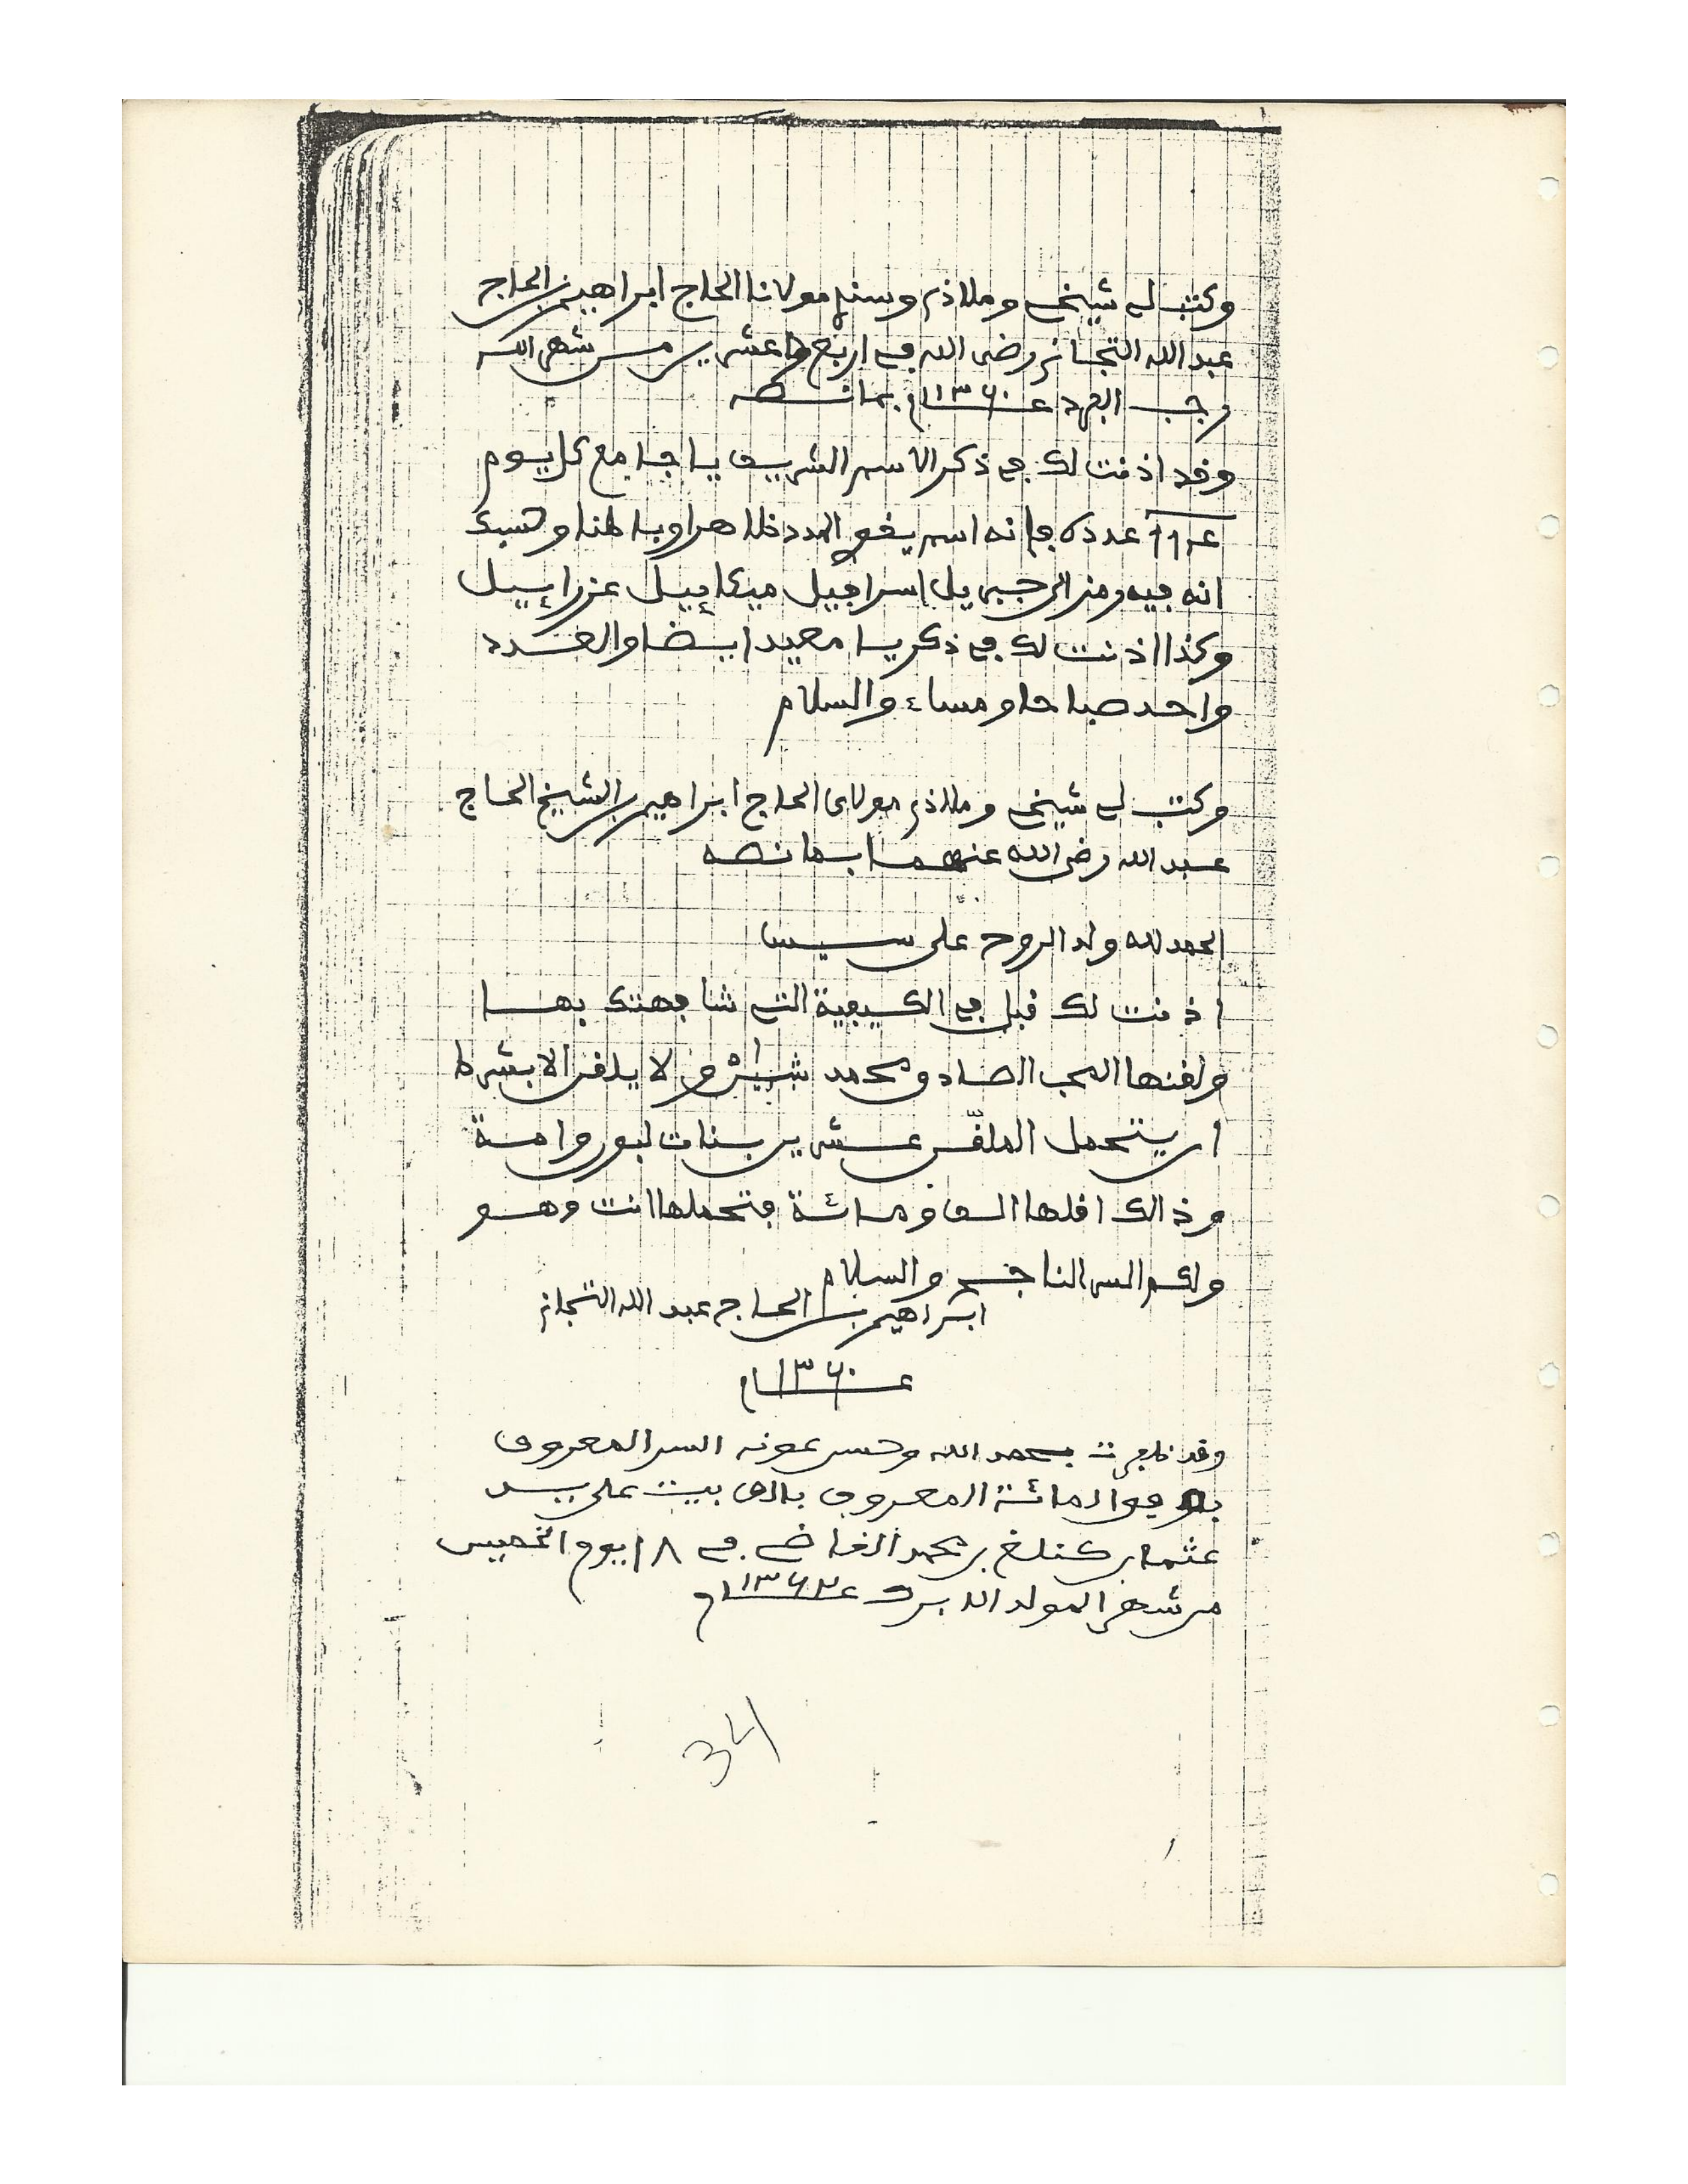 وكتب لي شيخي وملاذي وسندي مولانا الحاج ابراهيم بن الحاج
عبد الله التجاني رضي الله في اربع وعشرين من شهر الله
رجب الفرد عــ١٣٦٠ــام بما نصه
وقد اذنت لك في ذكر الاسم الشريف يا جامع كل يوم
عدده فإنه اسم يقوي المدد ظاهرا وباطنا وحسبك
انه فيه رمز الى جبريل اسرافيل ميكاييل عزراييل
وكذا اذنت لك في ذكر يا معيد ايضا والعدد
واحد صباحا ومساء والسلام
وكتب لي شيخي وملاذي مولاى الحاج ابراهيم بن الشيخ الحاج
عبد الله رضي الله عنهما بما نصه
الحمد لله ولد الروح على سيس
اذنت لك قبل في الكيفية التي شافهتك بها
ولقنها المحب الصادق محمد ولا يلقن الا بشرط
ان يتحمل الملقّن عشرين بنات لبون وامة
وذالك اقلها الف ومائة فتحملها انت وهو
ولكم السر الناجح والسلام
ابراهيم بن الحاج عبد الله التجاني
عــ١٣٦٠ــام
وقد ظفرت بحمد الله وحسن عونه السر المعروف
المائة المعروف بالف بيت على يد
عثمان بن محمد القاضي في ١٨ يوم الخميس
من شهر المولد عــ١٣٦٣ــام
34